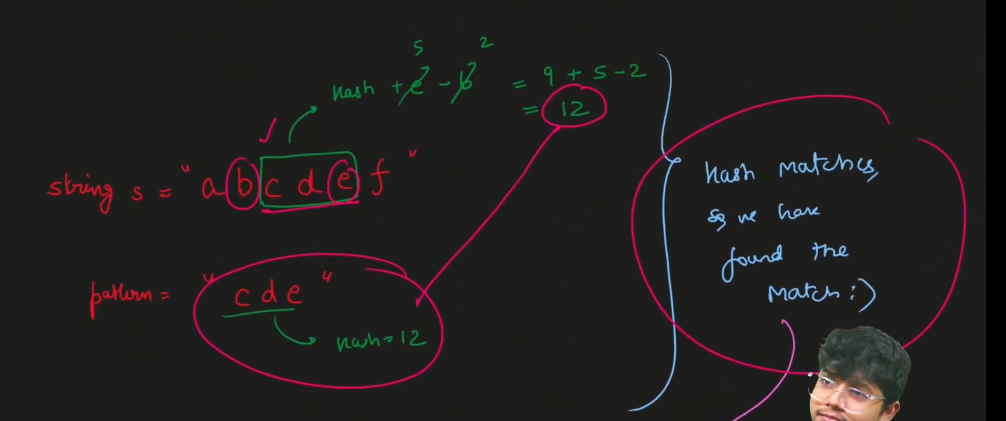 5 2
hash + e - b = 9 + 5 - 2
= 12
string s = "abcdef"
pattern = "cde"
hash = 12
hash matches,
so we have
found the
match :)